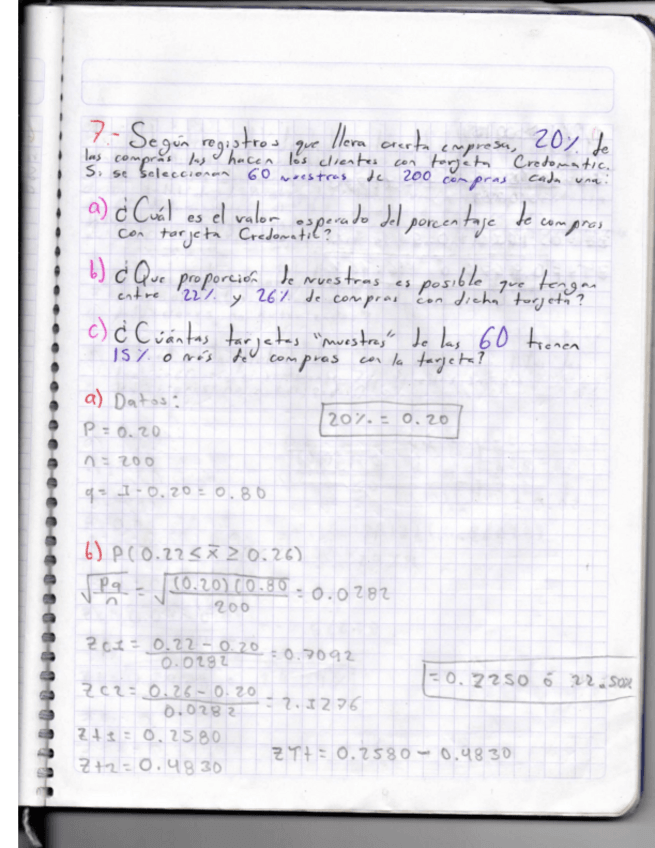 7.- Según registros que lleva cierta empresa, 20% de
las compras las hacen los clientes con tarjeta Credomatic.
Si se seleccionan 60 muestras de 200 compras cada una:
a) ¿Cuál es el valor esperado del porcentaje de compras
con tarjeta Credomatic?
b) ¿Que proporción de muestras es posible que tengan
entre 22% y 26% de compras con dicha tarjeta?
c) ¿Cuántas tarjetas "muestras" de las 60 tienen
15% o más de compras con la tarjeta?
a) Datos:
20% = 0.20
P = 0.20
n = 200
q = 1 - 0.20 = 0.80
b) P(0.22 ≤ x̄ ≥ 0.26)
√(Pq/n) = √((0.20)(0.80/200) = 0.0282
Zc1 = 0.22 - 0.20 / 0.0282 = 0.7092
= 0.2250 ó 22.50%
Zc2 = 0.26 - 0.20 / 0.0282 = 2.1276
Zt1 = 0.2580
ZTt = 0.2580 - 0.4830
Zt2 = 0.4830